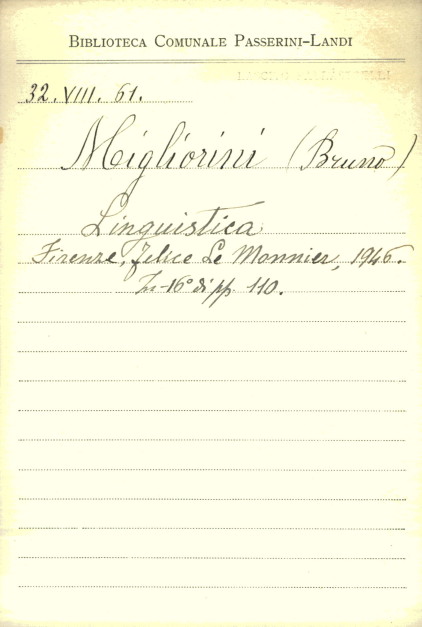 BIBLIOTECA COMUNALE PASSERINI-LANDI
32. VIII. 61.
Migliorini (Bruno)
Linguistica
Firenze, Felice Le Monnier, 1946.
In-16° di pp. 110.